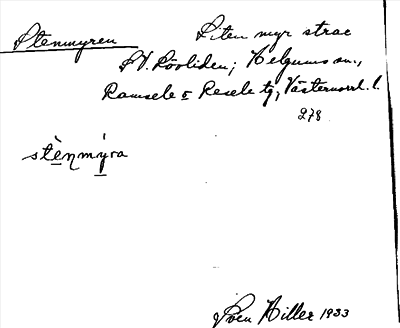 Stenmyren
Liten myr strax
SV. Rövliden; Helgums sn.,
Ramsele o Resele tg, Västernorrl. l.
278
stènmýra
Sven Hiller 1933